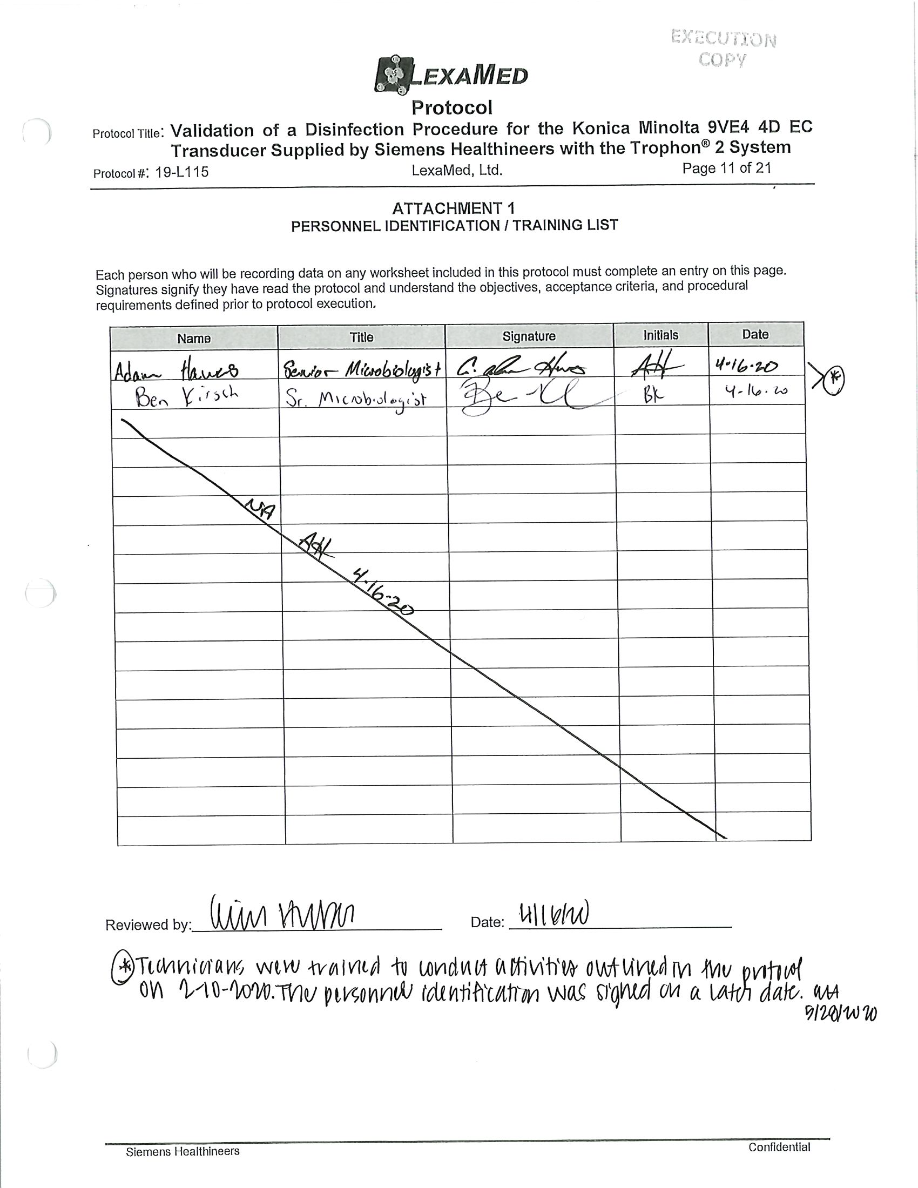 EXECUTION
COPY
LEXAMED
Protocol
Protocol Title: Validation of a Disinfection Procedure for the Konica Minolta 9VE4 4D EC
Transducer Supplied by Siemens Healthineers with the Trophon® 2 System
Protocol #: 19-L115 LexaMed, Ltd. Page 11 of 21
ATTACHMENT 1
PERSONNEL IDENTIFICATION / TRAINING LIST
Each person who will be recording data on any worksheet included in this protocol must complete an entry on this page.
Signatures signify they have read the protocol and understand the objectives, acceptance criteria, and procedural
requirements defined prior to protocol execution.
Name Title Signature Initials Date
Adam Hawes Senior Microbiologist AH 4-16-20 *
Ben Kirsch Sr. Microbiologist BK 4-16-20
NA
AH
4-16-20
Reviewed by: Date: 4/16/20
* Technicians were trained to conduct activities outlined in the protocol
on 2-10-2020. The personnel identification was signed on a later date.
5/28/2020
Siemens Healthineers Confidential